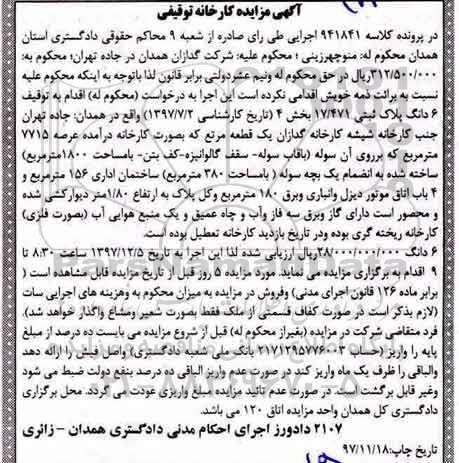 آگهی مزایده کارخانه توقیفی
در پرونده کلاسه ۹۴۱۸۴۱ اجرایی طی رای صادره از شعبه ۹ محاکم حقوقی دادگستری استان
همدان محکوم له: منوچهرزینی ؛ محکوم علیه: شرکت گدازان همدان در جاده تهران؛ محکوم به:
۳۱۲/۵۰۰/۰۰۰ریال در حق محکوم له ونیم عشردولتی برابر قانون لذا باتوجه به اینکه محکوم علیه
نسبت به برائت ذمه خویش اقدامی نکرده است این اجرا به درخواست (محکوم له) اقدام به توقیف
۶ دانگ پلاک ثبتی ۱۷/۴۷۱ بخش ۴ (تاریخ کارشناسی ۱۳۹۷/۷/۲) واقع در همدان: جاده تهران
جنب کارخانه شیشه کارخانه گدازان یک قطعه مرتع که بصورت کارخانه درآمده عرصه ۷۷۱۵
مترمربع که برروی آن سوله (باقاب سوله- سقف گالوانیزه-کف بتن- بامساحت ۱۸۰۰مترمربع)
ساخته شده به انضمام یک بچه سوله ( بامساحت ۳۸۰ مترمربع) ساختمان اداری ۱۵۶ مترمربع و
۴ باب اتاق موتور دیزل وانباری وبرق ۱۸۰ مترمربع وکل پلاک به ارتفاع ۱/۸۰متر دیوارکشی شده
و محصور است دارای گاز وبرق سه فاز وآب و چاه عمیق و یک منبع هوایی آب (بصورت فلزی)
کارخانه ریخته گری بوده ودر تاریخ بازدید کارخانه تعطیل بوده است.
۶ دانگ ۲۸/۰۰۰/۰۰۰/۰۰۰ریال ارزیابی شده لذا این اجرا به تاریخ ۱۳۹۷/۱۲/۵ ساعت ۸:۳۰ تا
۹ اقدام به برگزاری مزایده می نماید. مورد مزایده ۵ روز قبل از تاریخ مزایده قابل مشاهده است (
برابر ماده ۱۲۶ قانون اجرای مدنی) وفروش در مزایده به میزان محکوم به وهزینه های اجرایی سات
(لازم بذکر است در صورت کفاف قسمتی از ملک فقط بصورت شعیر ومشاع واگذار خواهد شد).
فرد متقاضی شرکت در مزایده (بغیراز محکوم له) قبل از شروع مزایده می بایست ده درصد از مبلغ
پایه را واریز (حساب ۲۱۷۱۲۹۵۷۷۶۰۰۳ بانک ملی شعبه دادگستری) واصل فیش را ارائه دهد
والباقی را ظرف یک ماه واریز کند در صورت عدم واریز الباقی ده درصد بنفع دولت ضبط می شود
وغیر قابل برگشت است. در صورت عدم تائید مزایده مبلغ واریزی عودت می گردد. محل برگزاری
دادگستری کل همدان واحد مزایده اتاق ۱۲۰ می باشد.
۲۱۰۷ دادورز اجرای احکام مدنی دادگستری همدان – زائری
تاریخ چاپ:۹۷/۱۱/۱۸